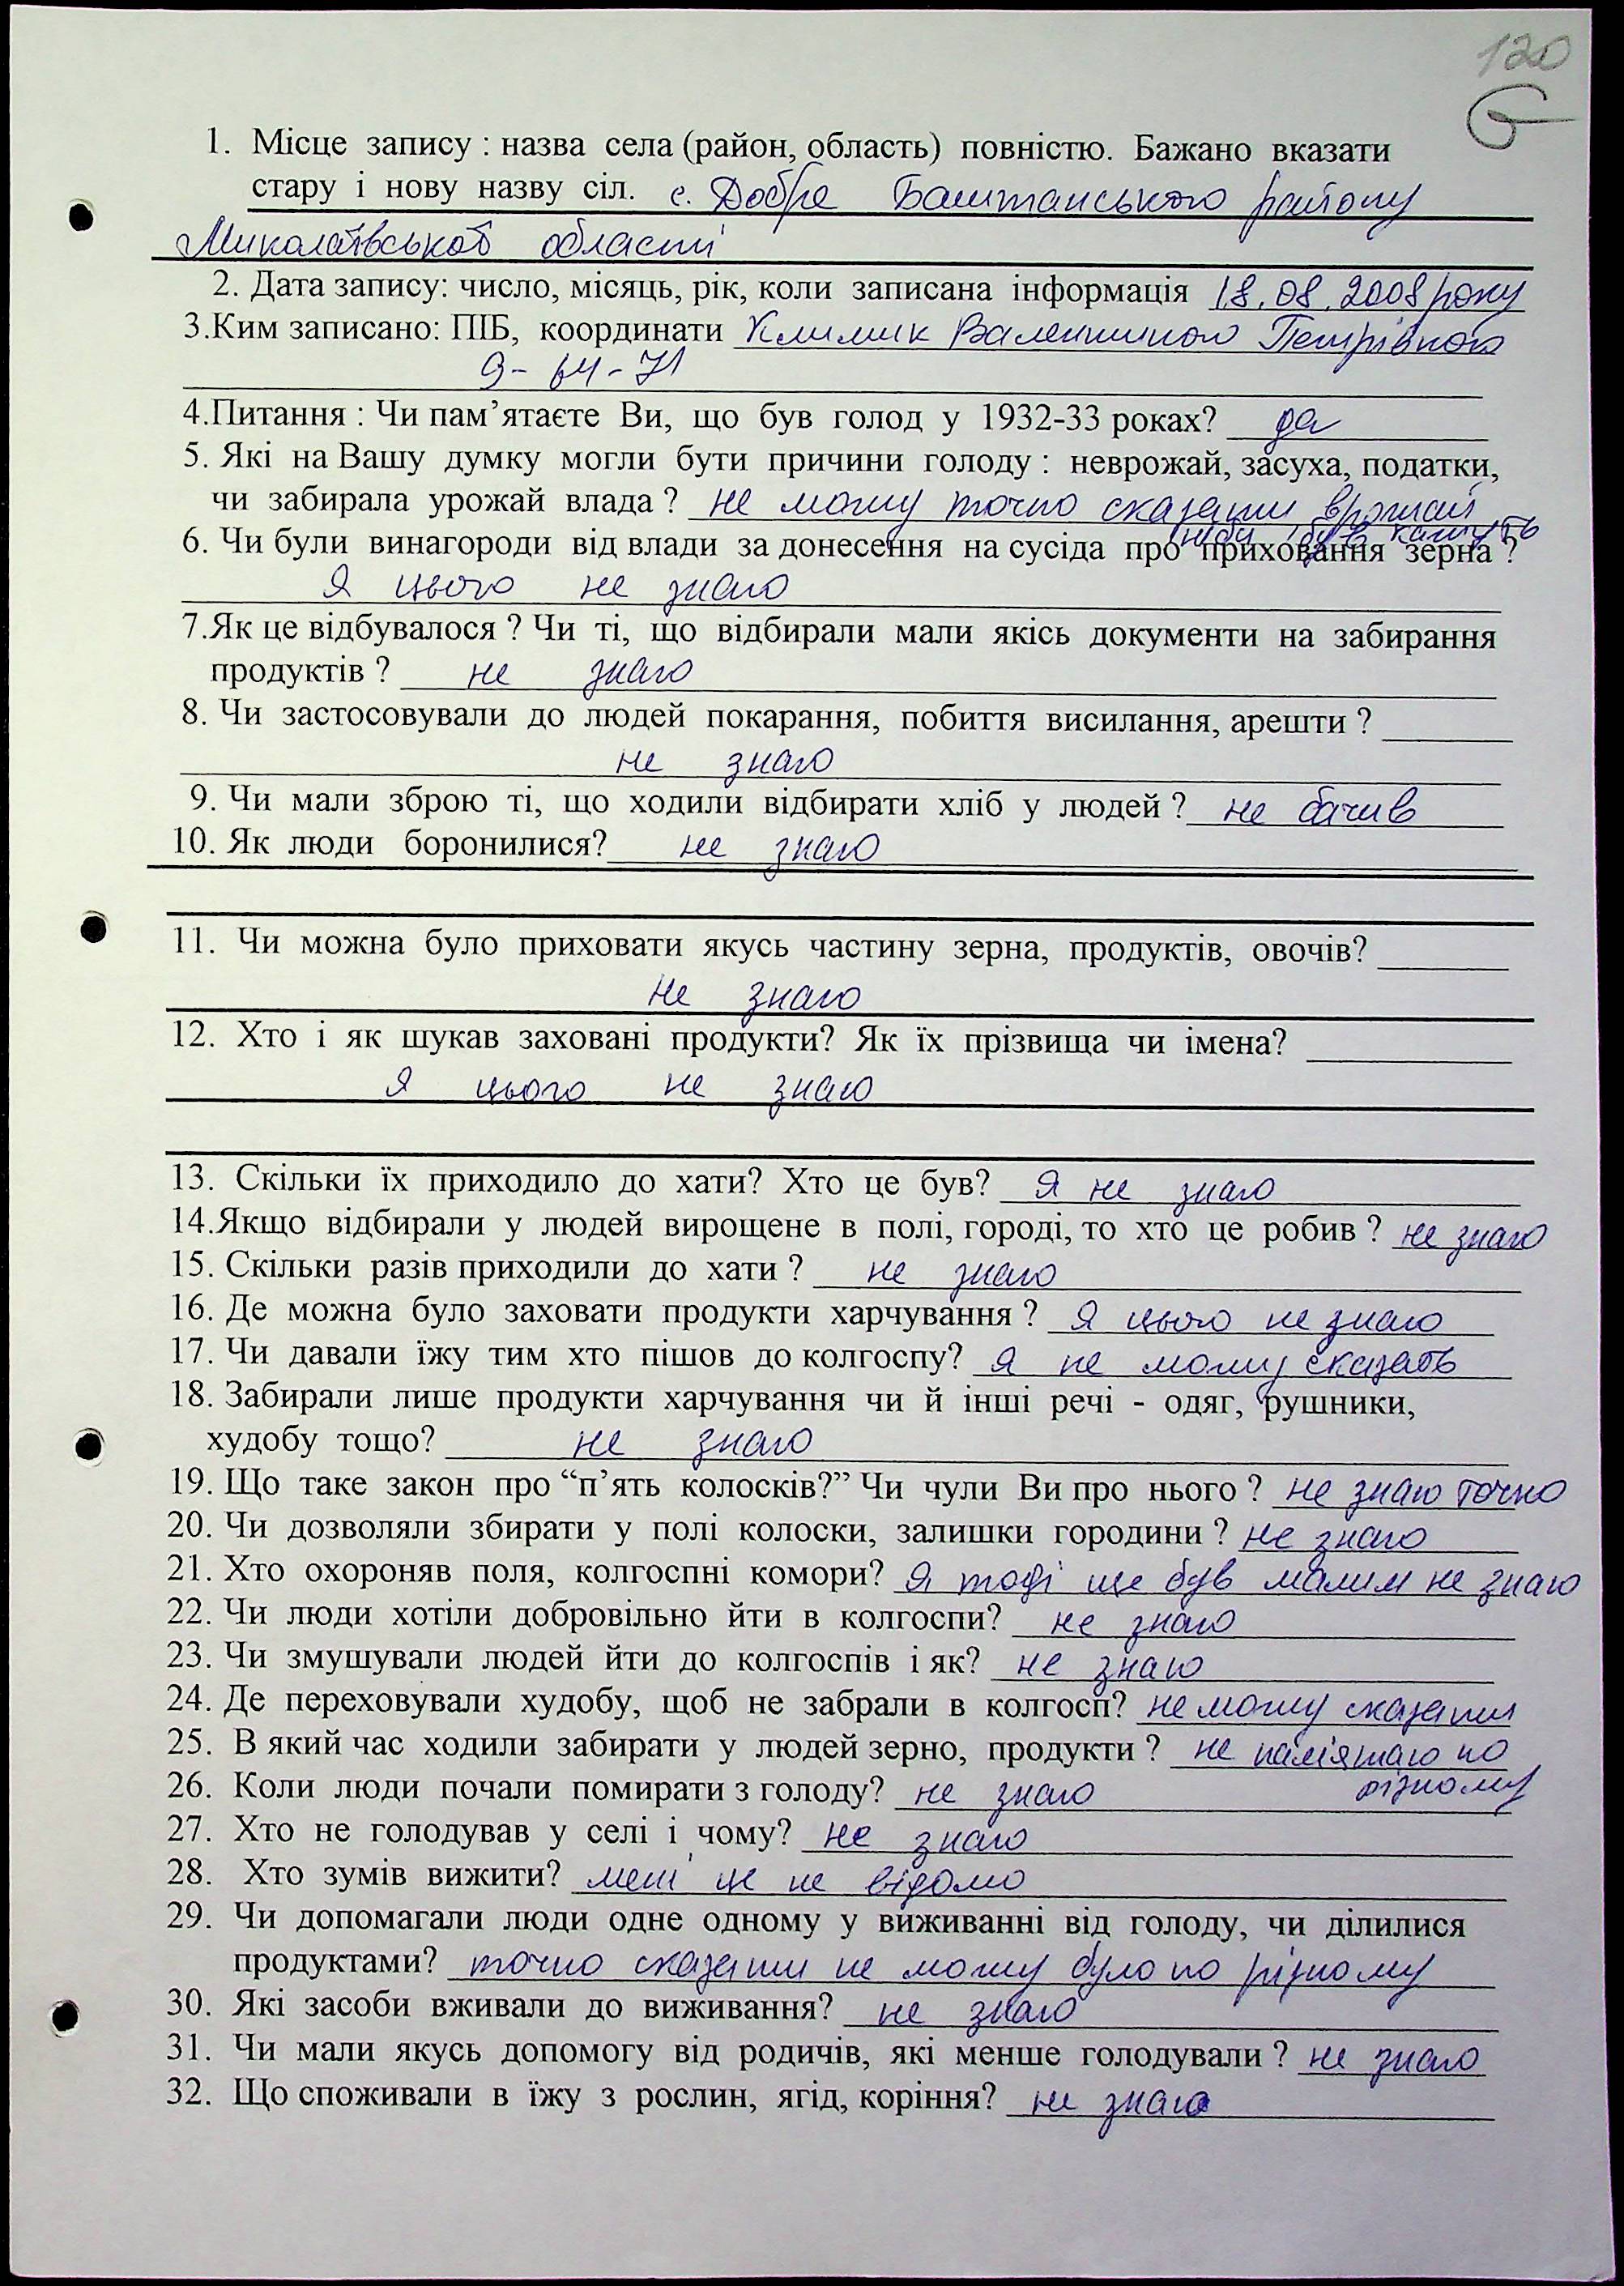 120
1. Місце запису : назва села (район, область) повністю. Бажано вказати
стару і нову назву сіл. с. Добре Баштанського району
Миколаївської області
2. Дата запису: число, місяць, рік, коли записана інформація 18.08.2008 року
3.Ким записано: ПІБ, координати Климик Валентиною Петрівною
9-64-71
4.Питання : Чи пам’ятаєте Ви, що був голод у 1932-33 роках? да
5. Які на Вашу думку могли бути причини голоду : неврожай, засуха, податки,
чи забирала урожай влада ? не можу точно сказати, врожай
ніби був кажуть
6. Чи були винагороди від влади за донесення на сусіда про приховання зерна ?
Я цього не знаю
7.Як це відбувалося ? Чи ті, що відбирали мали якісь документи на забирання
продуктів ? не знаю
8. Чи застосовували до людей покарання, побиття висилання, арешти ?
не знаю
9. Чи мали зброю ті, що ходили відбирати хліб у людей ? не бачив
10. Як люди боронилися? не знаю
11. Чи можна було приховати якусь частину зерна, продуктів, овочів?
не знаю
12. Хто і як шукав заховані продукти? Як їх прізвища чи імена?
я цього не знаю
13. Скільки їх приходило до хати? Хто це був? я не знаю
14.Якщо відбирали у людей вирощене в полі, городі, то хто це робив ? не знаю
15. Скільки разів приходили до хати ? не знаю
16. Де можна було заховати продукти харчування ? Я цього не знаю
17. Чи давали їжу тим хто пішов до колгоспу? я не можу сказать
18. Забирали лише продукти харчування чи й інші речі - одяг, рушники,
худобу тощо? не знаю
19. Що таке закон про “п’ять колосків?” Чи чули Ви про нього ? не знаю точно
20. Чи дозволяли збирати у полі колоски, залишки городини ? не знаю
21. Хто охороняв поля, колгоспні комори? я тоді ще був малим не знаю
22. Чи люди хотіли добровільно йти в колгоспи? не знаю
23. Чи змушували людей йти до колгоспів і як? не знаю
24. Де переховували худобу, щоб не забрали в колгосп? не можу сказати
25. В який час ходили забирати у людей зерно, продукти ? не пам'ятаю по
різному
26. Коли люди почали помирати з голоду? не знаю
27. Хто не голодував у селі і чому? не знаю
28. Хто зумів вижити? мені це не відомо
29. Чи допомагали люди одне одному у виживанні від голоду, чи ділилися
продуктами? точно сказати не можу було по різному
30. Які засоби вживали до виживання? не знаю
31. Чи мали якусь допомогу від родичів, які менше голодували ? не знаю
32. Що споживали в їжу з рослин, ягід, коріння? не знаю